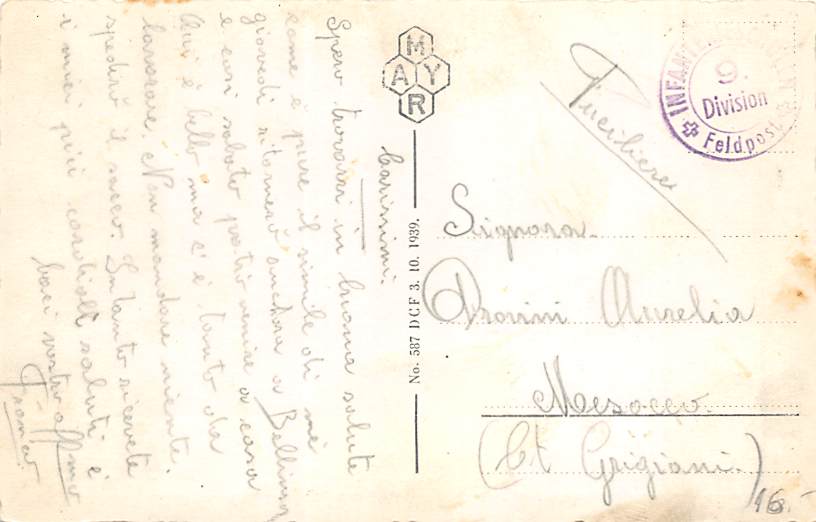 Carissimi.
Spero trovarvi in buona salute
come è pure il simile di me
giovedì ritornerò anchora a Bellinzona
e così sabato potrò venire a casa
Qui è bello ma c'è tanto da
lavorare. Non mandare niente.
spedirò il sacco. Intanto ricevete
i miei più cordiali saluti e
baci vostro affmo
Franco
MAYR
No. 587 DCF 3. 10. 1939.
Fuciliere
INFANTERIE
9.
Division
Feldpost
Signora
Provini Aurelia
Mesocco.
(Ct Grigioni.)
16.-